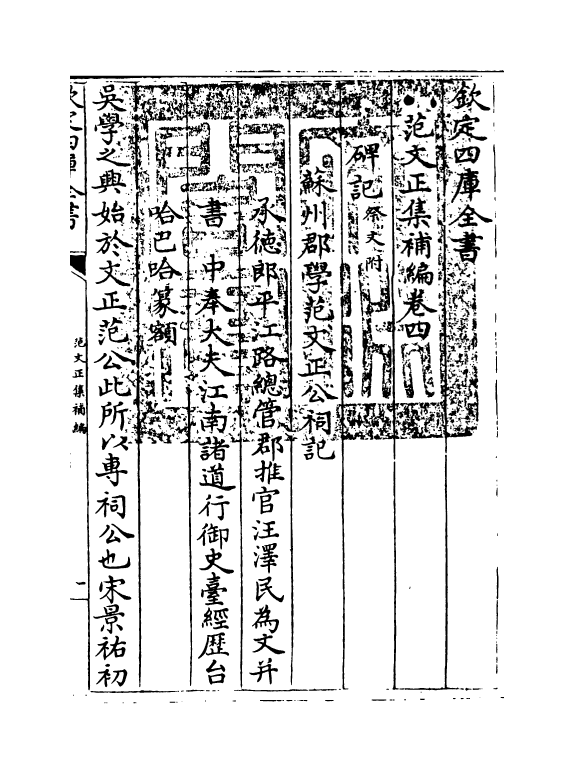 欽定四庫全書
范文正集補編卷四
碑記祭文附
蘇州郡學范文正公祠記
承德郎平江路總管郡推官汪澤民為文并
書　中奉大夫江南諸道行御史臺經歷台
哈巴哈篆額
吳學之興始於文正范公此所以專祠公也宋景祐初
范文正集補編